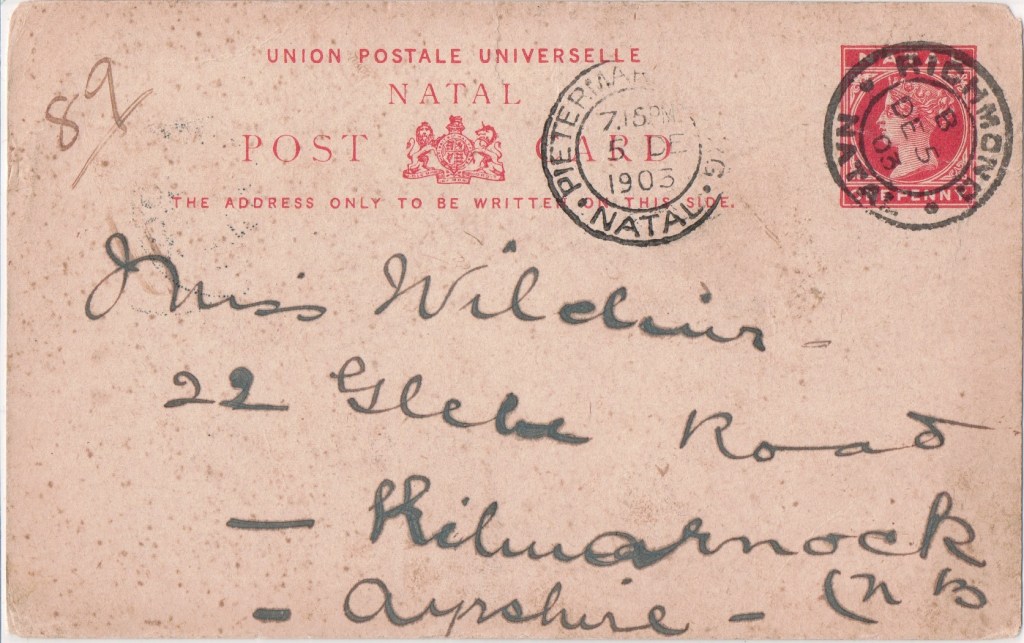 89
UNION POSTALE UNIVERSELLE
NATAL
POST CARD
THE ADDRESS ONLY TO BE WRITTEN ON THIS SIDE.
PIETERMAR
7.15PM
5 DE
1903
NATAL
NATAL
PENNY
RICHMOND
B
DE 5
03
NATAL
Miss
22 Glebe Road
— Kilmarnock
— Ayrshire — (N B